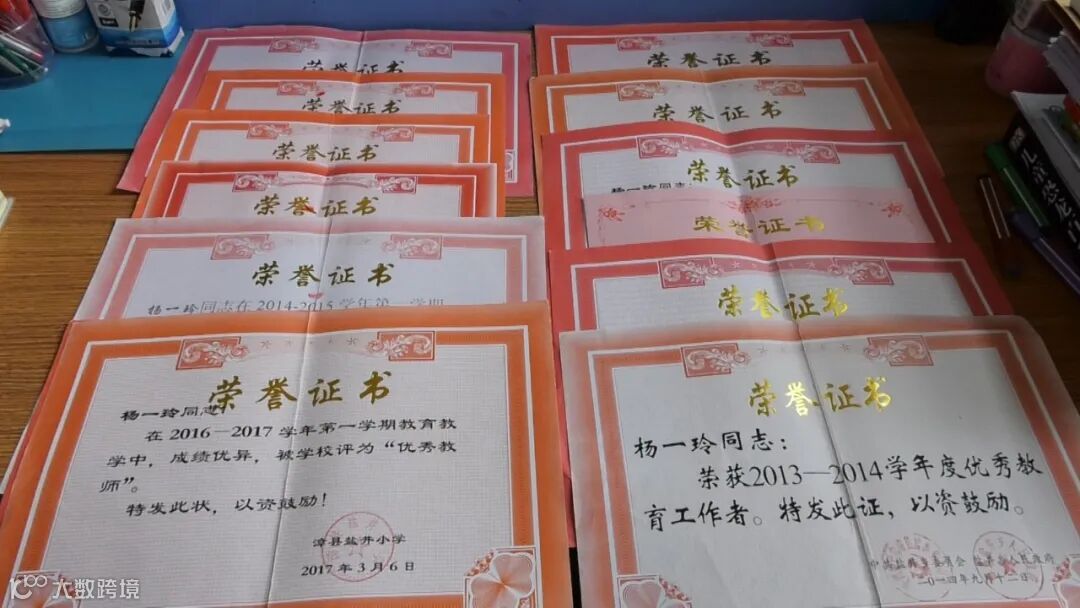 荣誉证书
荣誉证书
荣誉证书
荣誉证书
荣誉证书
杨一玲同志在 2014-2015 学年第一学期
荣誉证书
杨一玲同志:
在 2016—2017 学年第一学期教育教
学中，成绩优异，被学校评为“优秀教
师”。
特发此状，以资鼓励！
漳县盐井小学
2017 年 3 月 6 日
荣誉证书
荣誉证书
荣誉证书
杨一玲同志:
荣誉证书
荣誉证书
荣誉证书
杨一玲同志：
荣获2013—2014学年度优秀教
育工作者。特发此证，以资鼓励。
二〇一四年九月十二日
大数跨境